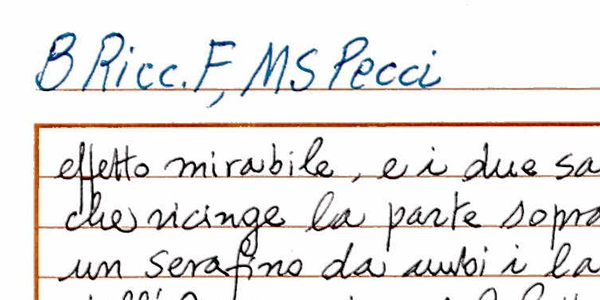 B Ricc. F, MS Pecci
effetto mirabile, e i due sa
che ricinge la parte sopra
un serafino da ambi i la